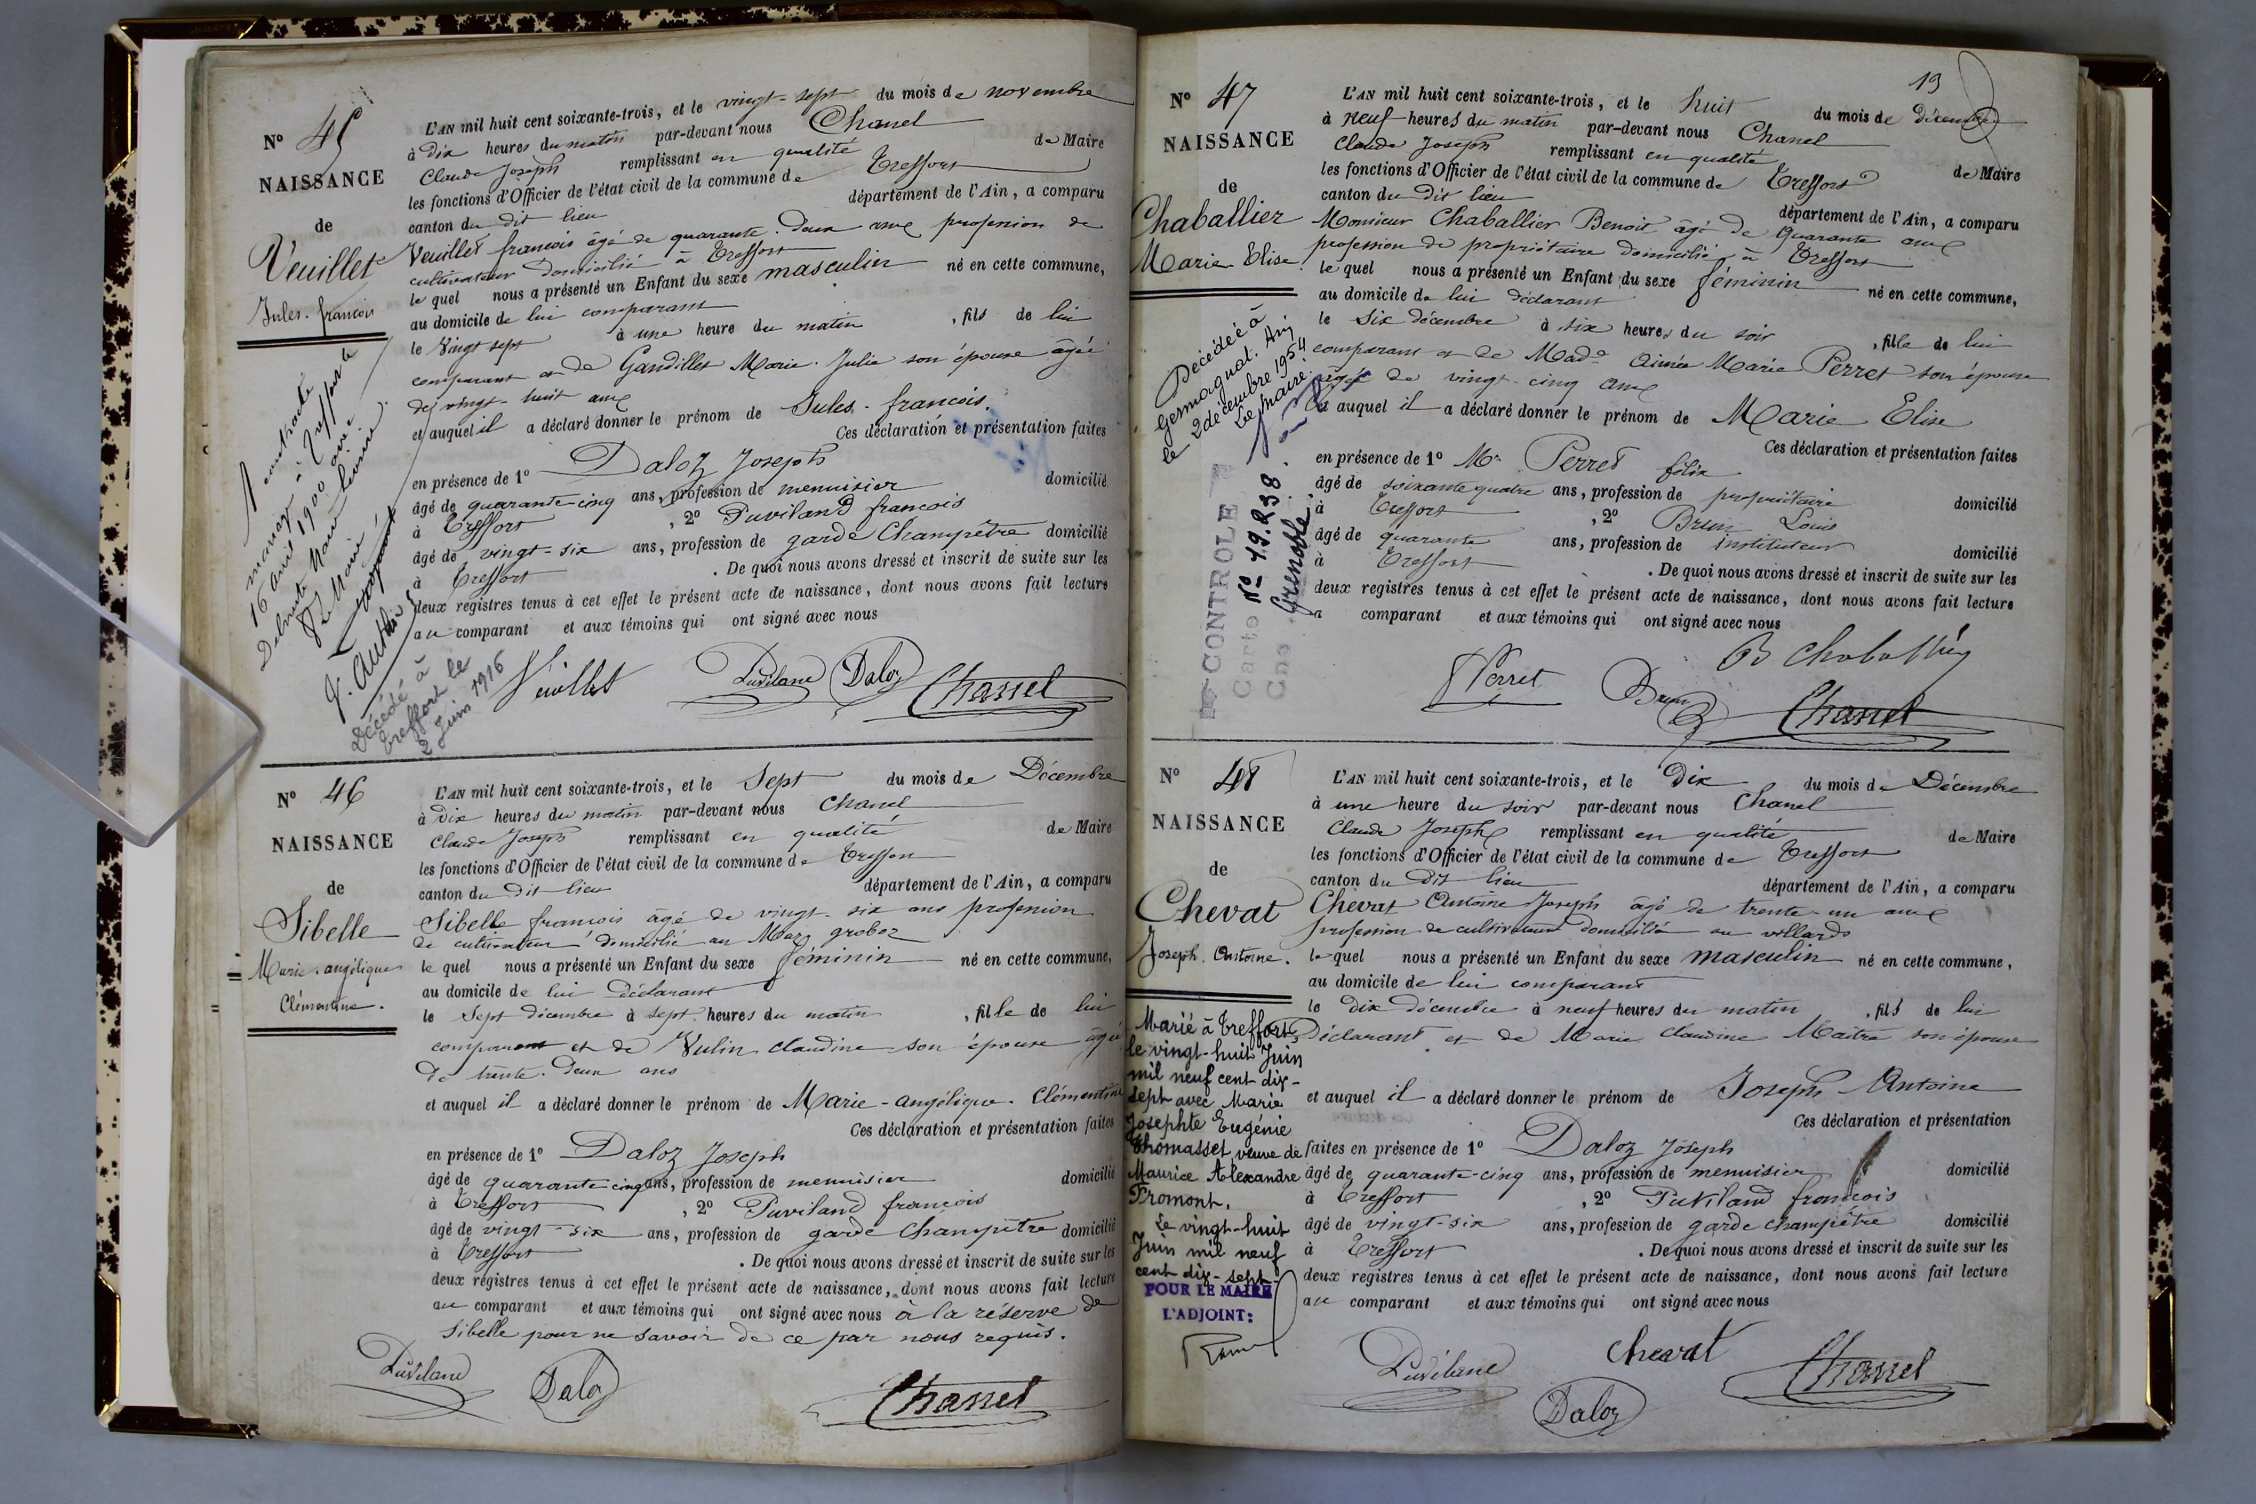 No 45
NAISSANCE
de
Veuillet
Jules. francois
L'AN mil huit cent soixante-trois, et le vingt-sept du mois de novembre
à dix heures du matin par-devant nous Chanel
Claude Joseph remplissant en qualité de Maire
les fonctions d'Officier de l'état civil de la commune de Treffort
canton du dit lieu département de l'Ain, a comparu
Veuillet francois âgé de quarante. deux ans profession de
cultivateur domicilié à Treffort
le quel nous a présenté un Enfant du sexe masculin né en cette commune,
au domicile de lui comparant
le vingt sept à une heure du matin, fils de lui
comparant et de Gandillet Marie. Julie son épouse âgée
de vingt-huit ans
et auquel il a déclaré donner le prénom de Jules. francois.
Ces déclaration et présentation faites
en présence de 1º Daloz Joseph
âgé de quarante-cinq ans, profession de menuisier domicilié
à Treffort, 2º Puviland francois
âgé de vingt-six ans, profession de garde Champêtre domicilié
à Treffort. De quoi nous avons dressé et inscrit de suite sur les
deux registres tenus à cet effet le présent acte de naissance, dont nous avons fait lecture
au comparant et aux témoins qui ont signé avec nous
Veuillet Puviland Daloz Chanel
A contracté
mariage à Treffort le
16 avril 1900 avec
Le Maire
Décédé à
Treffort le
2 Juin 1916
No 46
NAISSANCE
de
Sibelle
Marie. angélique
Clémentine.
L'AN mil huit cent soixante-trois, et le Sept du mois de Décembre
à dix heures du matin par-devant nous Chanel
Claude Joseph remplissant en qualité de Maire
les fonctions d'Officier de l'état civil de la commune de Treffort
canton du dit lieu département de l'Ain, a comparu
Sibelle francois âgé de vingt-six ans profession
de cultivateur domicilié au Maz groboz
le quel nous a présenté un Enfant du sexe féminin né en cette commune,
au domicile de lui déclarant
le Sept décembre à sept heures du matin, fille de lui
comparant et de Vulin claudine son épouse âgée
de trente. deux ans
et auquel il a déclaré donner le prénom de Marie-angélique. Clémentine
Ces déclaration et présentation faites
en présence de 1º Daloz Joseph
âgé de quarante cinq ans, profession de menuisier domicilié
à Treffort, 2º Puviland francois
âgé de vingt-six ans, profession de garde champêtre domicilié
à Treffort. De quoi nous avons dressé et inscrit de suite sur les
deux registres tenus à cet effet le présent acte de naissance, dont nous avons fait lecture
au comparant et aux témoins qui ont signé avec nous à la réserve de
Sibelle pour ne savoir de ce par nous requis.
Puviland Daloz Chanel
19
No 47
NAISSANCE
de
Chaballier
Marie Elise
L'AN mil huit cent soixante-trois, et le huit du mois de décembre
à neuf heures du matin par-devant nous Chanel
Claude Joseph remplissant en qualité de Maire
les fonctions d'Officier de l'état civil de la commune de Treffort
canton du dit lieu département de l'Ain, a comparu
Monsieur Chaballier Benoit âgé de Quarante ans
profession de propriétaire domicilié à Treffort
le quel nous a présenté un Enfant du sexe féminin né en cette commune,
au domicile de lui déclarant
le six décembre à six heures du soir, fille de lui
comparant et de Made Aimée Marie Perret son épouse
âgée de vingt-cinq ans
et auquel il a déclaré donner le prénom de Marie Elise
Ces déclaration et présentation faites
en présence de 1º Mr Perret félix
âgé de soixante quatre ans, profession de propriétaire domicilié
à Treffort, 2º Brun Louis
âgé de quarante ans, profession de instituteur domicilié
à Treffort. De quoi nous avons dressé et inscrit de suite sur les
deux registres tenus à cet effet le présent acte de naissance, dont nous avons fait lecture
a comparant et aux témoins qui ont signé avec nous
B Chaballier
Perret Brun Chanel
Décédée à
Germagnat. Ain
le 2 décembre 1954
Le Maire:
CONTROLE
Carte No 19.238.
Cne Grenoble.
No 48
NAISSANCE
de
Chevat
Joseph. Antoine.
L'AN mil huit cent soixante-trois, et le Dix du mois de Décembre
à une heure du soir par-devant nous Chanel
Claude Joseph remplissant en qualité de Maire
les fonctions d'Officier de l'état civil de la commune de Treffort
canton du dit lieu département de l'Ain, a comparu
Chevat Antoine Joseph âgé de trente-un ans
profession de cultivateur domicilié au villard
le quel nous a présenté un Enfant du sexe masculin né en cette commune,
au domicile de lui comparant
le dix décembre à neuf heures du matin, fils de lui
Déclarant et de Marie Claudine Maitre son épouse
et auquel il a déclaré donner le prénom de Joseph Antoine
Ces déclaration et présentation
faites en présence de 1º Daloz Joseph
âgé de quarante-cinq ans, profession de menuisier domicilié
à Treffort, 2º Puviland francois
âgé de vingt-six ans, profession de garde champêtre domicilié
à Treffort. De quoi nous avons dressé et inscrit de suite sur les
deux registres tenus à cet effet le présent acte de naissance, dont nous avons fait lecture
au comparant et aux témoins qui ont signé avec nous
Puviland Chevat Chanel
Daloz
Marié à Treffort,
le vingt-huit Juin
mil neuf cent dix-
sept avec Marie
Josephte Eugénie
Thomasset, veuve de
Maurice Alexandre
Fromont.
Le vingt-huit
Juin mil neuf
cent dix-sept.
POUR LE MAIRE
L'ADJOINT: